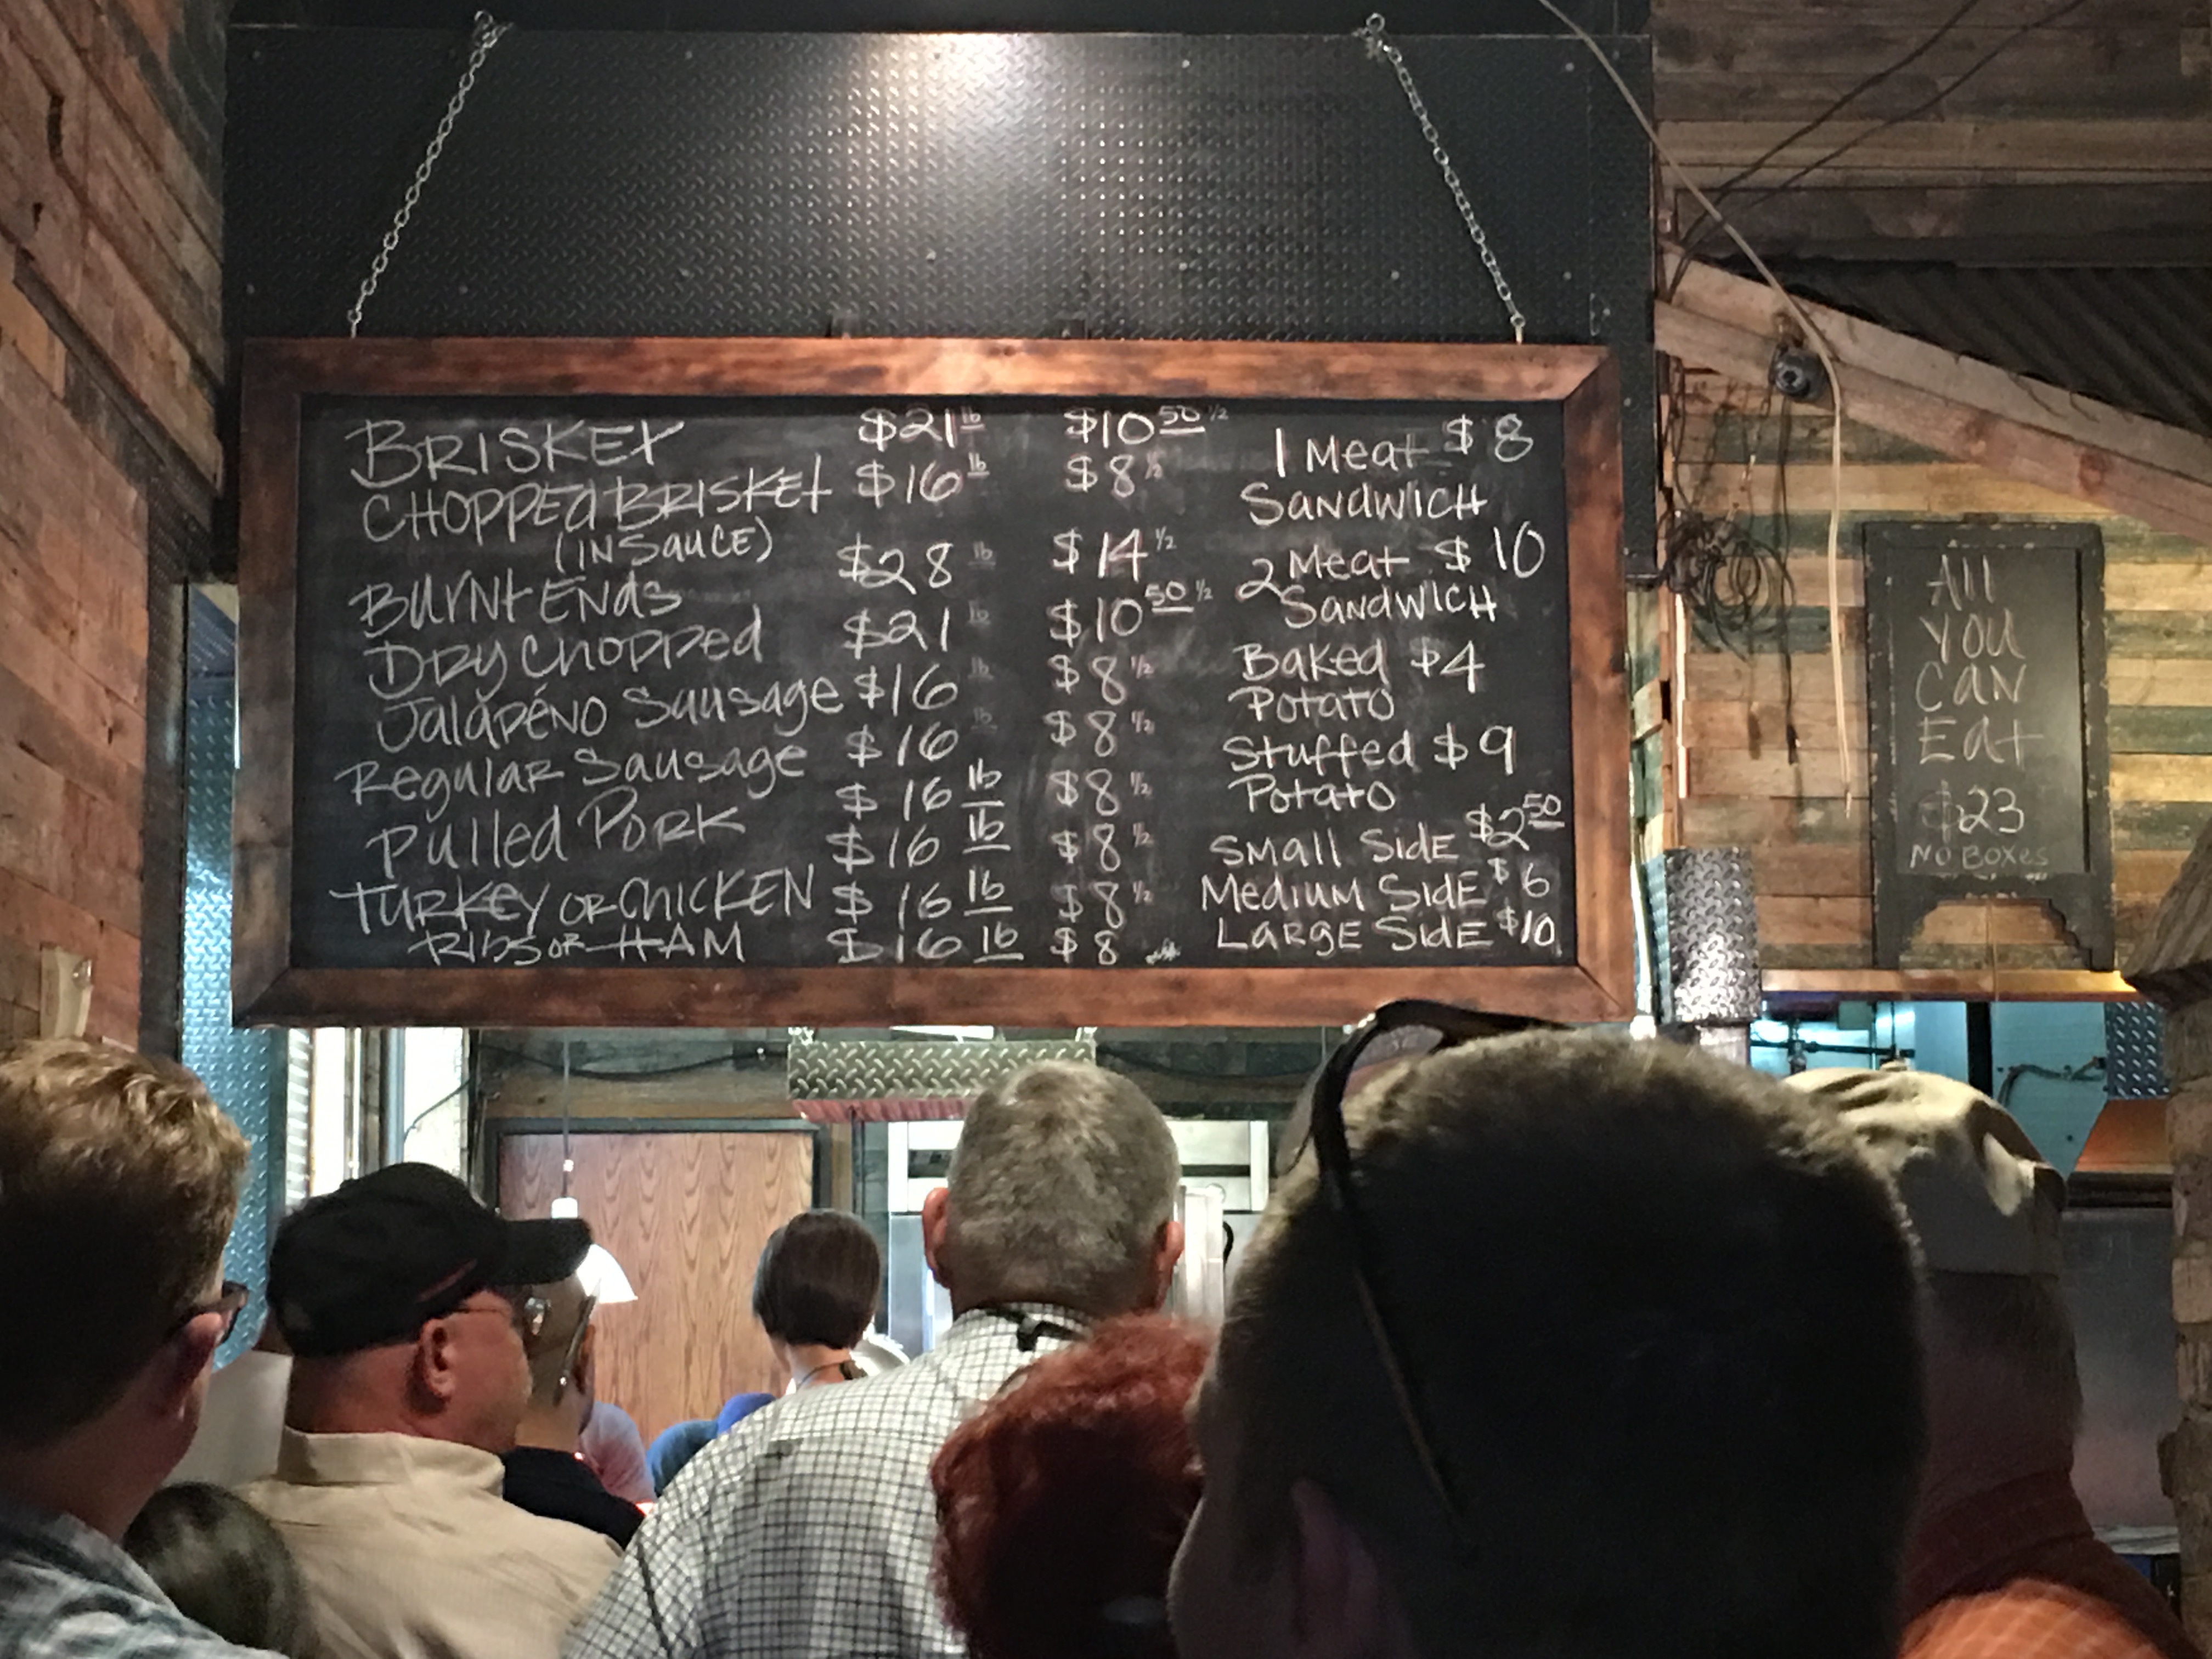 BRISKET $21 lb $10 50 1/2
CHOPPED BRISKET $16 lb $8 1/2
(IN SAUCE)
BURNT ENDS $28 lb $14 1/2
DRY CHOPPED $21 lb $10 50 1/2
Jalapéno Sausage $16 lb $8 1/2
Regular Sausage $16 lb $8 1/2
Pulled Pork $16 lb $8 1/2
$16 lb $8 1/2
TURKEY OR CHICKEN $16 lb $8 1/2
RIBS OR HAM $16 lb $8
1 Meat $8
SANDWICH
2 Meat $10
SANDWICH
Baked $4
Potato
Stuffed $9
Potato
Small Side $2 50
Medium Side $6
Large Side $10
All
You
Can
Eat
$23
No Boxes